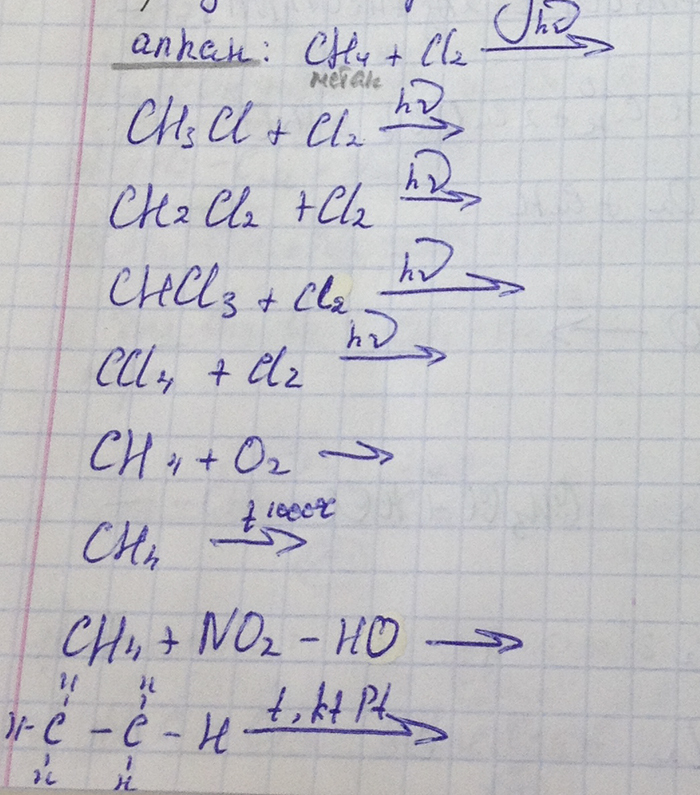 алкан: CH₄ + Cl₂ hν →
метан
CH₃Cl + Cl₂ hν →
CH₂Cl₂ + Cl₂ hν →
CHCl₃ + Cl₂ hν →
CCl₄ + Cl₂ hν →
CH₄ + O₂ →
CH₄ t 1000°C →
CH₄ + NO₂ – HO →
H H
H - C – C – H t, kt Pt →
H H